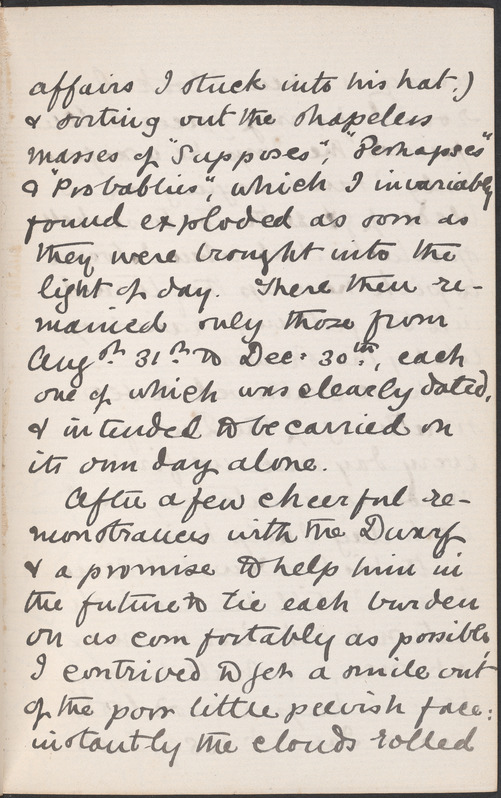 affairs I stuck into his hat.)
& sorting out the shapeless
masses of "Supposes", "Perhapses"
& "Probablies", which I invariably
found exploded as soon as
they were brought into the
light of day. There then re-
mained only those from
Aug st 31 st to Dec: 30th, each
one of which was clearly dated,
& intended to be carried on
its own day alone.
After a few cheerful re-
monstrances with the Dwarf
& a promise to help him in
the future to tie each burden
on as comfortably as possible,
I contrived to get a smile out
of the poor little peevish face:
instantly the clouds rolled